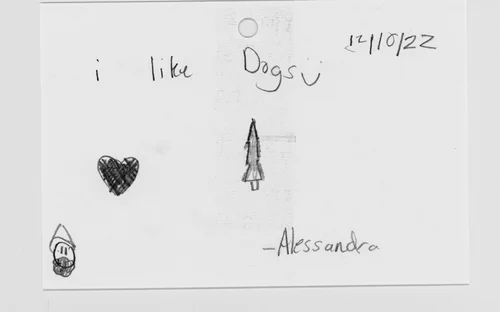 12/10/22
i like Dogs
-Alessandra